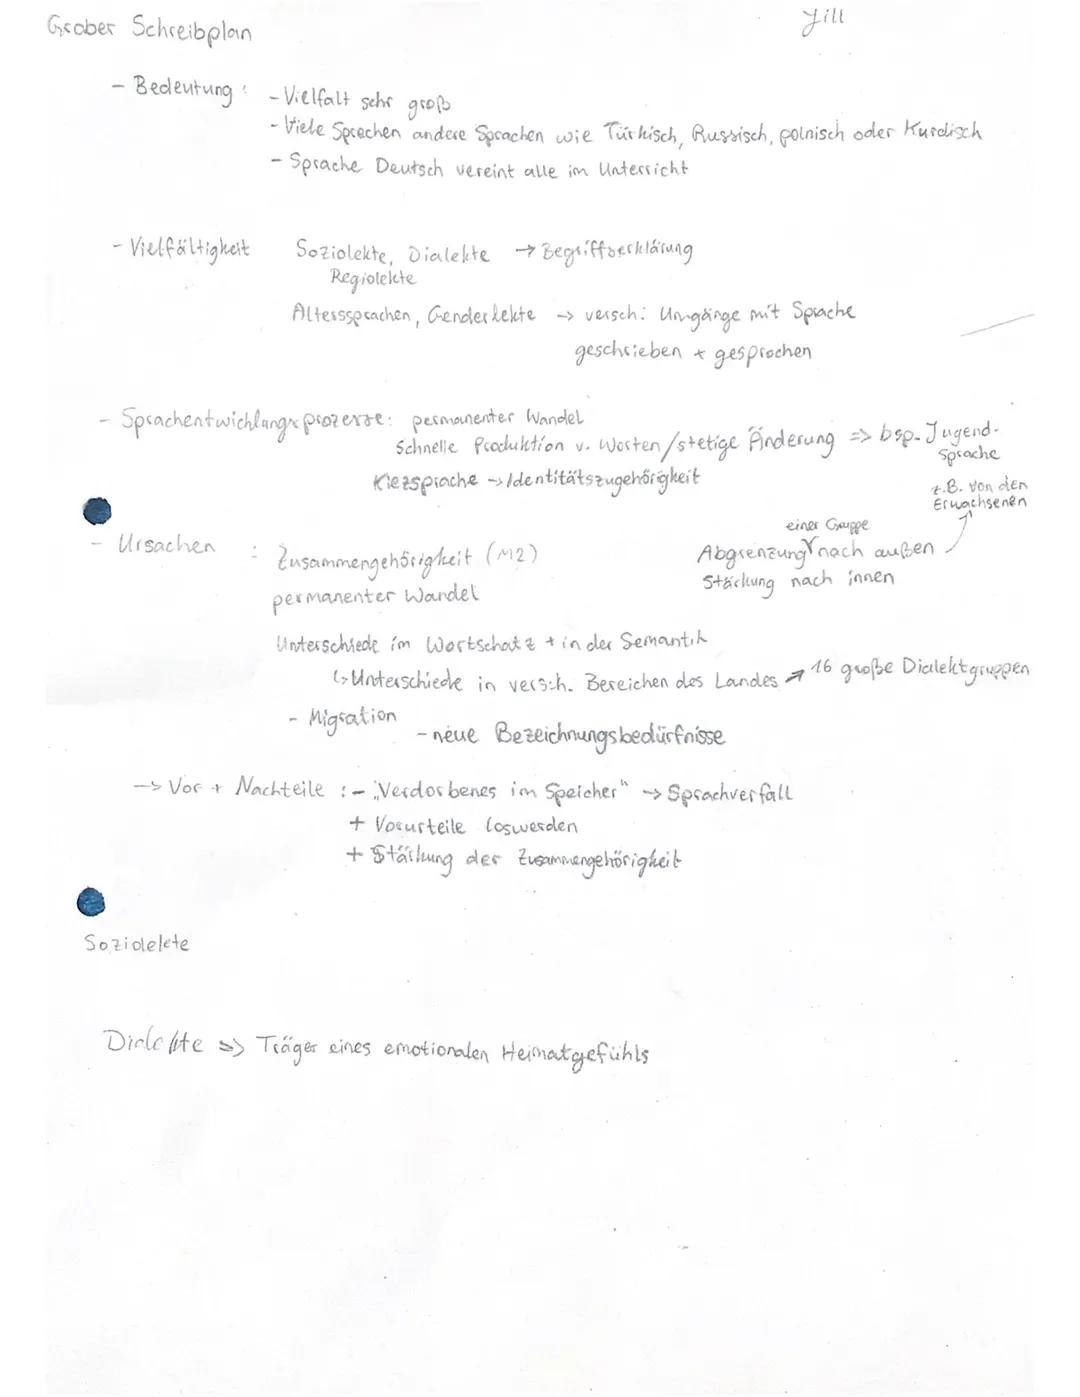 Grober Schreibplan
Jill
- Bedeutung: - Vielfalt sehr groß
- Viele Sprechen andere Sprachen wie Türkisch, Russisch, polnisch oder Kurdisch
- Sprache Deutsch vereint alle im Unterricht
- Vielfältigkeit Soziolekte, Dialekte → Begriffserklärung
Regiolekte
Alterssprachen, Genderlekte → versch. Umgänge mit Sprache
geschrieben + gesprochen
- Sprachentwicklungsprozesse: permanenter Wandel
Schnelle Produktion v. Worten/stetige Änderung => bsp. Jugend-
sprache
Kiezsprache → Identitätszugehörigkeit
z.B. von den
Erwachsenen
- Ursachen : Zusammengehörigkeit (M2)
einer Gruppe
Abgrenzung nach außen
permanenter Wandel
Stärkung nach innen
Unterschiede im Wortschatz + in der Semantik
↳ Unterschiede in versch. Bereichen des Landes → 16 große Dialektgruppen
- Migration
- neue Bezeichnungsbedürfnisse
→ Vor + Nachteile : - "Verdorbenes im Speicher" → Sprachverfall
+ Vorurteile loswerden
+ Stärkung der Zusammengehörigkeit
Soziolekte
Dialekte => Träger eines emotionalen Heimatgefühls